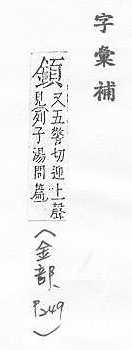 字彙補
顉又五警切迎上聲
見列子湯問篇
(金部 P249)